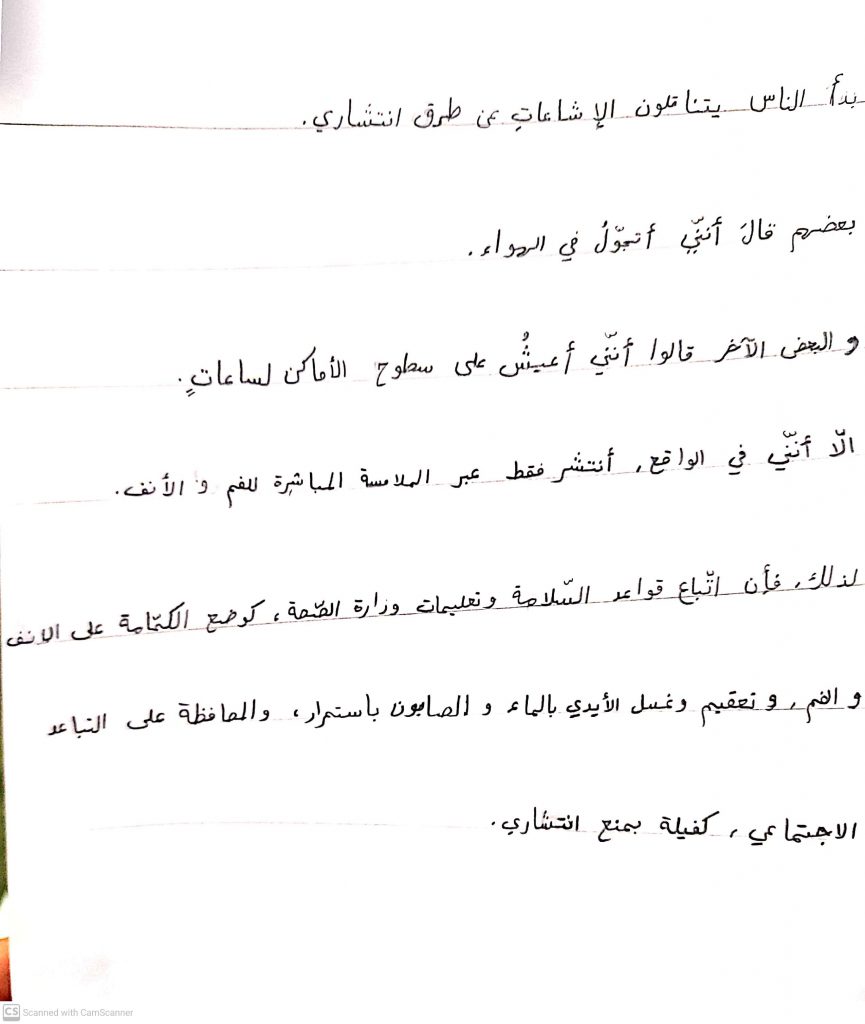 بدأ الناس يتناقلون الإشاعاتِ عن طرق انتشاري.
بعضهم قالَ أنّني أتجوّلُ في الهواء.
و البعض الآخر قالوا أنّني أعيشُ على سطوح الأماكن لساعاتٍ.
الّا أنّني في الواقع، أنتشر فقط عبر الملامسة المباشِرة للفم و الأنف.
لذلك، فأن اتّباع قواعد السّلامة وتعليمات وزارة الصّحة، كوضع الكمّامة على الانف
و الفم، و تعقيم وغسل الأيدي بالماء و الصابون باستمرار، والمحافظة على التباعد
الاجتماعي، كفيلة بمنع انتشاري.
CS Scanned with CamScanner